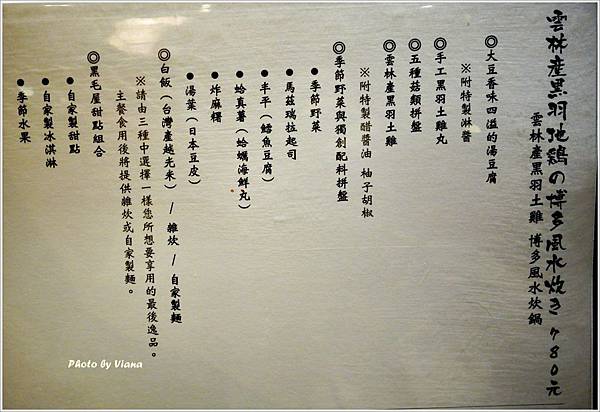 雲林産黒羽地鶏の博多風水炊き 780元
雲林產黑羽土雞 博多風水炊鍋
◎大豆香味四溢的湯豆腐
※附特製淋醬
◎手工黑羽土雞丸
◎五種菇類拼盤
◎雲林產黑羽土雞
※附特製醋醬油 柚子胡椒
◎季節野菜與獨創配料拼盤
●季節野菜
●馬茲瑞拉起司
●半平(鱈魚豆腐)
●蛤真薯(蛤蠣海鮮丸)
●炸麻糬
●湯葉(日本豆皮)
◎白飯(台灣產越光米) / 雜炊 / 自家製麵
※請由三種中選擇一樣您所想要享用的最後逸品。
主餐食用後將提供雜炊或自家製麵。
◎黑毛屋甜點組合
●自家製甜點
●自家製冰淇淋
●季節水果
Photo by Viana